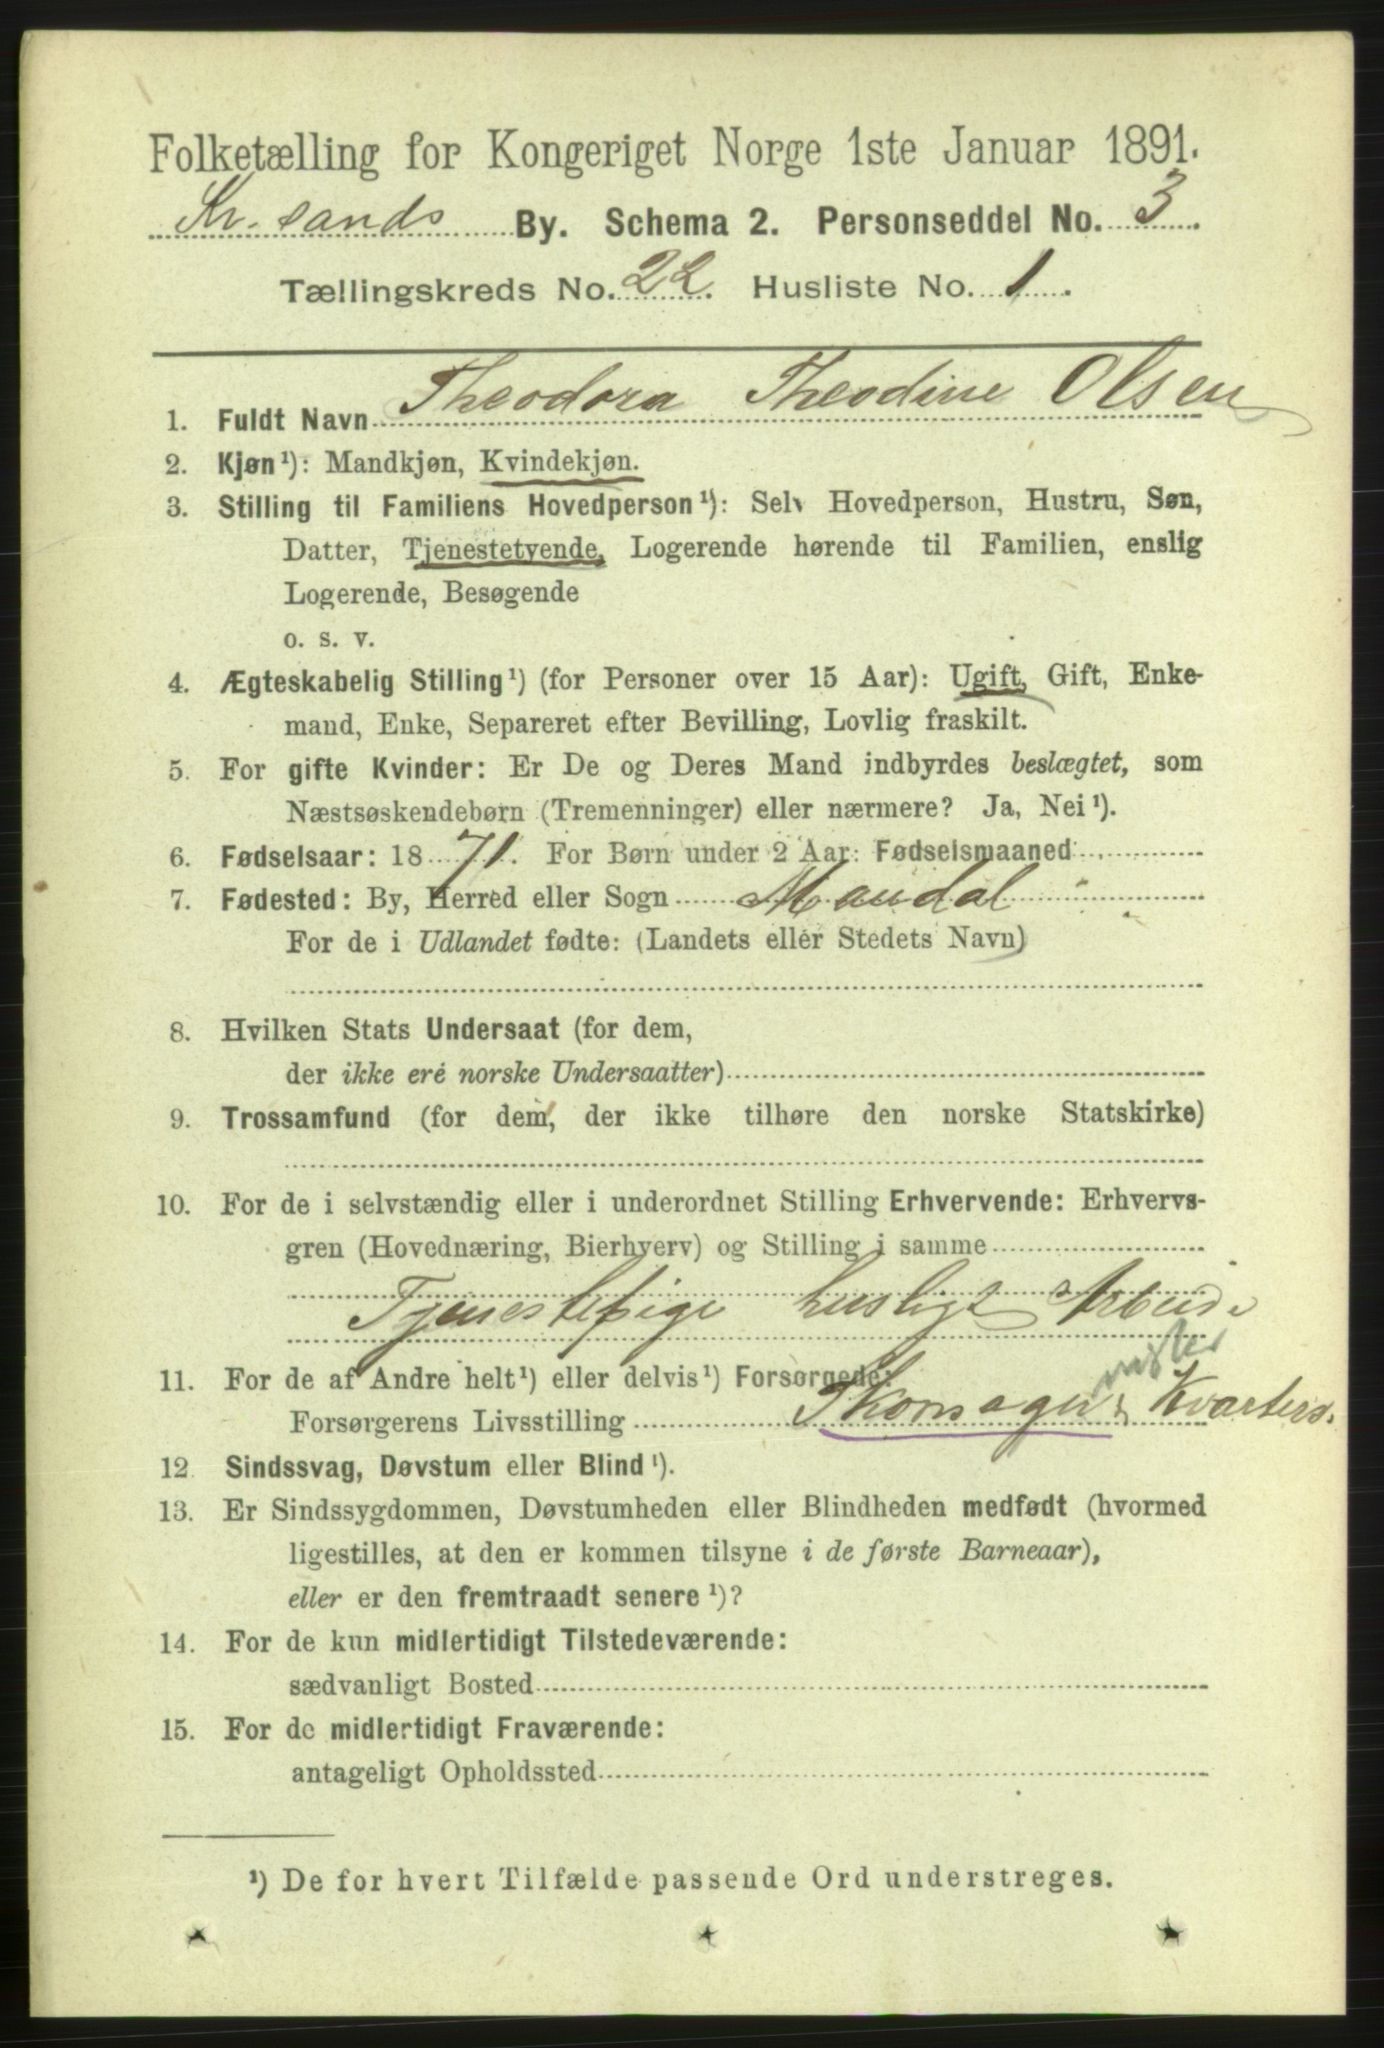 Folketælling for Kongeriget Norge 1ste Januar 1891.
Kr. sands By. Schema 2. Personseddel No. 3
Tællingskreds No. 22. Husliste No. 1.
1. Fuldt Navn Theodora Theodine Olsen
2. Kjøn¹): Mandkjøn, Kvindekjøn.
3. Stilling til Familiens Hovedperson¹): Selv Hovedperson, Hustru, Søn,
Datter, Tjenestetyende, Logerende hørende til Familien, enslig
Logerende, Besøgende
o. s. v.
4. Ægteskabelig Stilling¹) (for Personer over 15 Aar): Ugift, Gift, Enke-
mand, Enke, Separeret efter Bevilling, Lovlig fraskilt.
5. For gifte Kvinder: Er De og Deres Mand indbyrdes beslægtet, som
Næstsøskendebørn (Tremenninger) eller nærmere? Ja, Nei¹).
6. Fødselsaar: 1871. For Børn under 2 Aar: Fødselsmaaned
7. Fødested: By, Herred eller Sogn Mandal
For de i Udlandet fødte: (Landets eller Stedets Navn)
8. Hvilken Stats Undersaat (for dem,
der ikke ere norske Undersaatter)
9. Trossamfund (for dem, der ikke tilhøre den norske Statskirke)
10. For de i selvstændig eller i underordnet Stilling Erhvervende: Erhvervs-
gren (Hovednæring, Bierhverv) og Stilling i samme
Tjenestepige husligt Arbeide
11. For de af Andre helt¹) eller delvis¹) Forsørgede:
Forsørgerens Livsstilling Kvarters.
12. Sindssvag, Døvstum eller Blind¹).
13. Er Sindssygdommen, Døvstumheden eller Blindheden medfødt (hvormed
ligestilles, at den er kommen tilsyne i de første Barneaar),
eller er den fremtraadt senere¹)?
14. For de kun midlertidigt Tilstedeværende:
sædvanligt Bosted
15. For de midlertidigt Fraværende:
antageligt Opholdssted
¹) De for hvert Tilfælde passende Ord understreges.